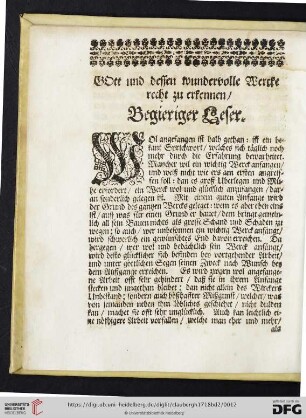 GOtt und dessen wundervolle Wercke
recht zu erkennen/
Begieriger Leser.
WOl angefangen ist halb gethan: ist ein be-
kant Sprichwort/ welches sich täglich noch
mehr durch die Erfahrung bewarheitet.
Mancher wol ein wichtig Werck anfangen/
und weiß nicht wie ers am ersten angreif-
fen soll: dan es groß Uberlegen und Mü-
he erfordert/ ein Werck wol und glücklich anzufangen/ dar-
an sonderlich gelegen ist. Mit einem guten Anfange wird
der Grund des gantzen Wercks geleget: wem es aber oder eins
ist/ auf was für einen Grund er bauet/ dem bringt gemein-
lich all sein Bauen nichts als grosse Schand und Schaden zu
wegen: so auch/ wer unbesonnen ein wichtig Werck anfängt/
wird schwerlich ein gewünschtes End davon erreichen. Da
hergegen/ wer wol und bedächtlich sein Werck anfängt/
wird desto glücklicher sich befinden bey vorgehender Arbeit/
und unter göttlichem Segen seinen Zweck nach Wunsch bey
dem Außgange erreichen. Es wird zwar wol angefange-
ne Arbeit offt sehr gehindert/ daß sie in ihrem Anfange
stecken und ungethan bleibet: dan nicht allein des Wercks
Umbstand/ sondern auch boßhaffter Mißgunst/ welcher/ was
von jemanden neben ihm löbliches geschiehet/ nicht dulden
kan/ machet sie offt sehr unglücklich. Auch kan leichtlich ei-
ne nöthigere Arbeit vorfallen/ welche man eher und mehr/
als
https://digi.ub.uni-heidelberg.de/diglit/clauberg1713bd2/0012
UNIVERSITÄTS-
BIBLIOTHEK
HEIDELBERG
DFG